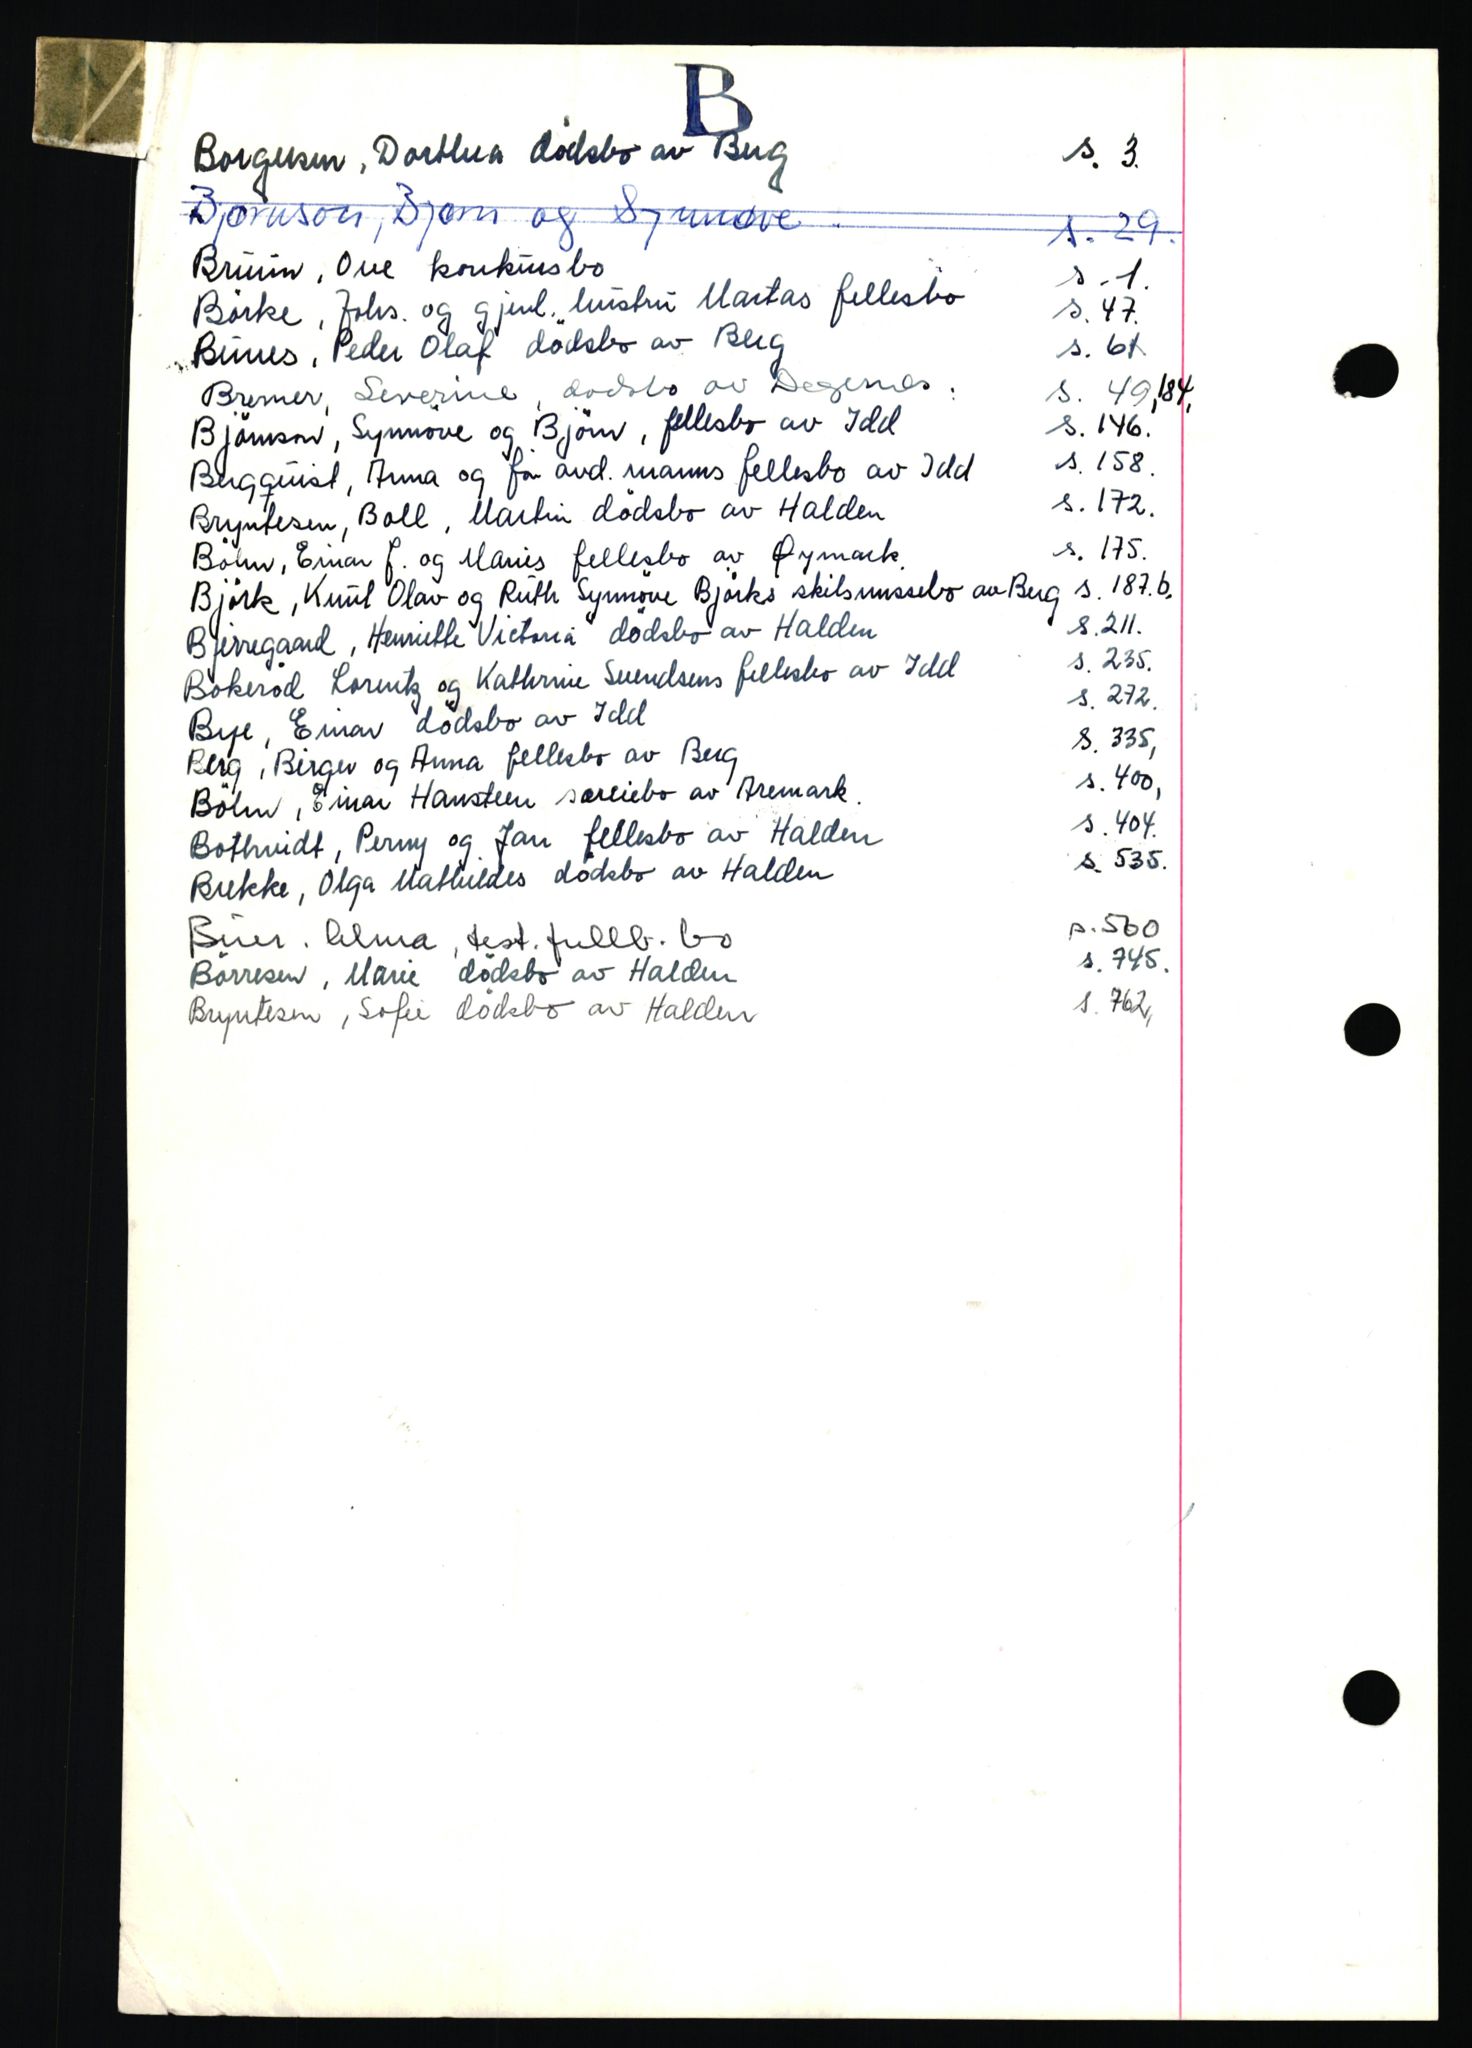 B
Borgersen, Dorthea dödsbo av Berg s. 3.
Bjørnson, Bjørn og Synnøve. s. 29.
Bruun, Ove konkursbo s. 1.
Börke, Johs. og gjenl. hustru Martas fellesbo s. 47.
Peder Olaf dödsbo av Berg s. 61
Bremer, Severine, dødsbo av Degernes. s. 49, 184,
Björnson, Synnöve og Björn, fellesbo av Idd s. 146.
Bergquist, Anna og før avd. manns fellesbo av Idd s. 158.
Bryntesen, Boll, Martin dödsbo av Halden s. 172.
Böhn, Einar J. og Maries fellesbo av Øymark. s. 175.
Björk, Knut Olav og Ruth Synnöve Björks skilsmissebo av Berg s. 187.b.
Bjerregaard, Henriette Victoria dödsbo av Halden s. 211.
Bokeröd Lorentz og Kathrine Svendsens fellesbo av Idd s. 235.
Bye, Einar dödsbo av Idd s. 272.
Berg, Birger og Anna fellesbo av Berg s. 335,
Böhn, Einar Hansteen særeiebo av Aremark. s. 400,
Bothnidt, Perny og Jan fellesbo av Halden s. 404.
Brekke, Olga Mathildes dödsbo av Halden s. 535.
Buer. Alma, test. fullb. bo s. 560
Börresen, Marie dödsbo av Halden s. 745.
Bryntesen, Sofie dödsbo av Halden s. 762,